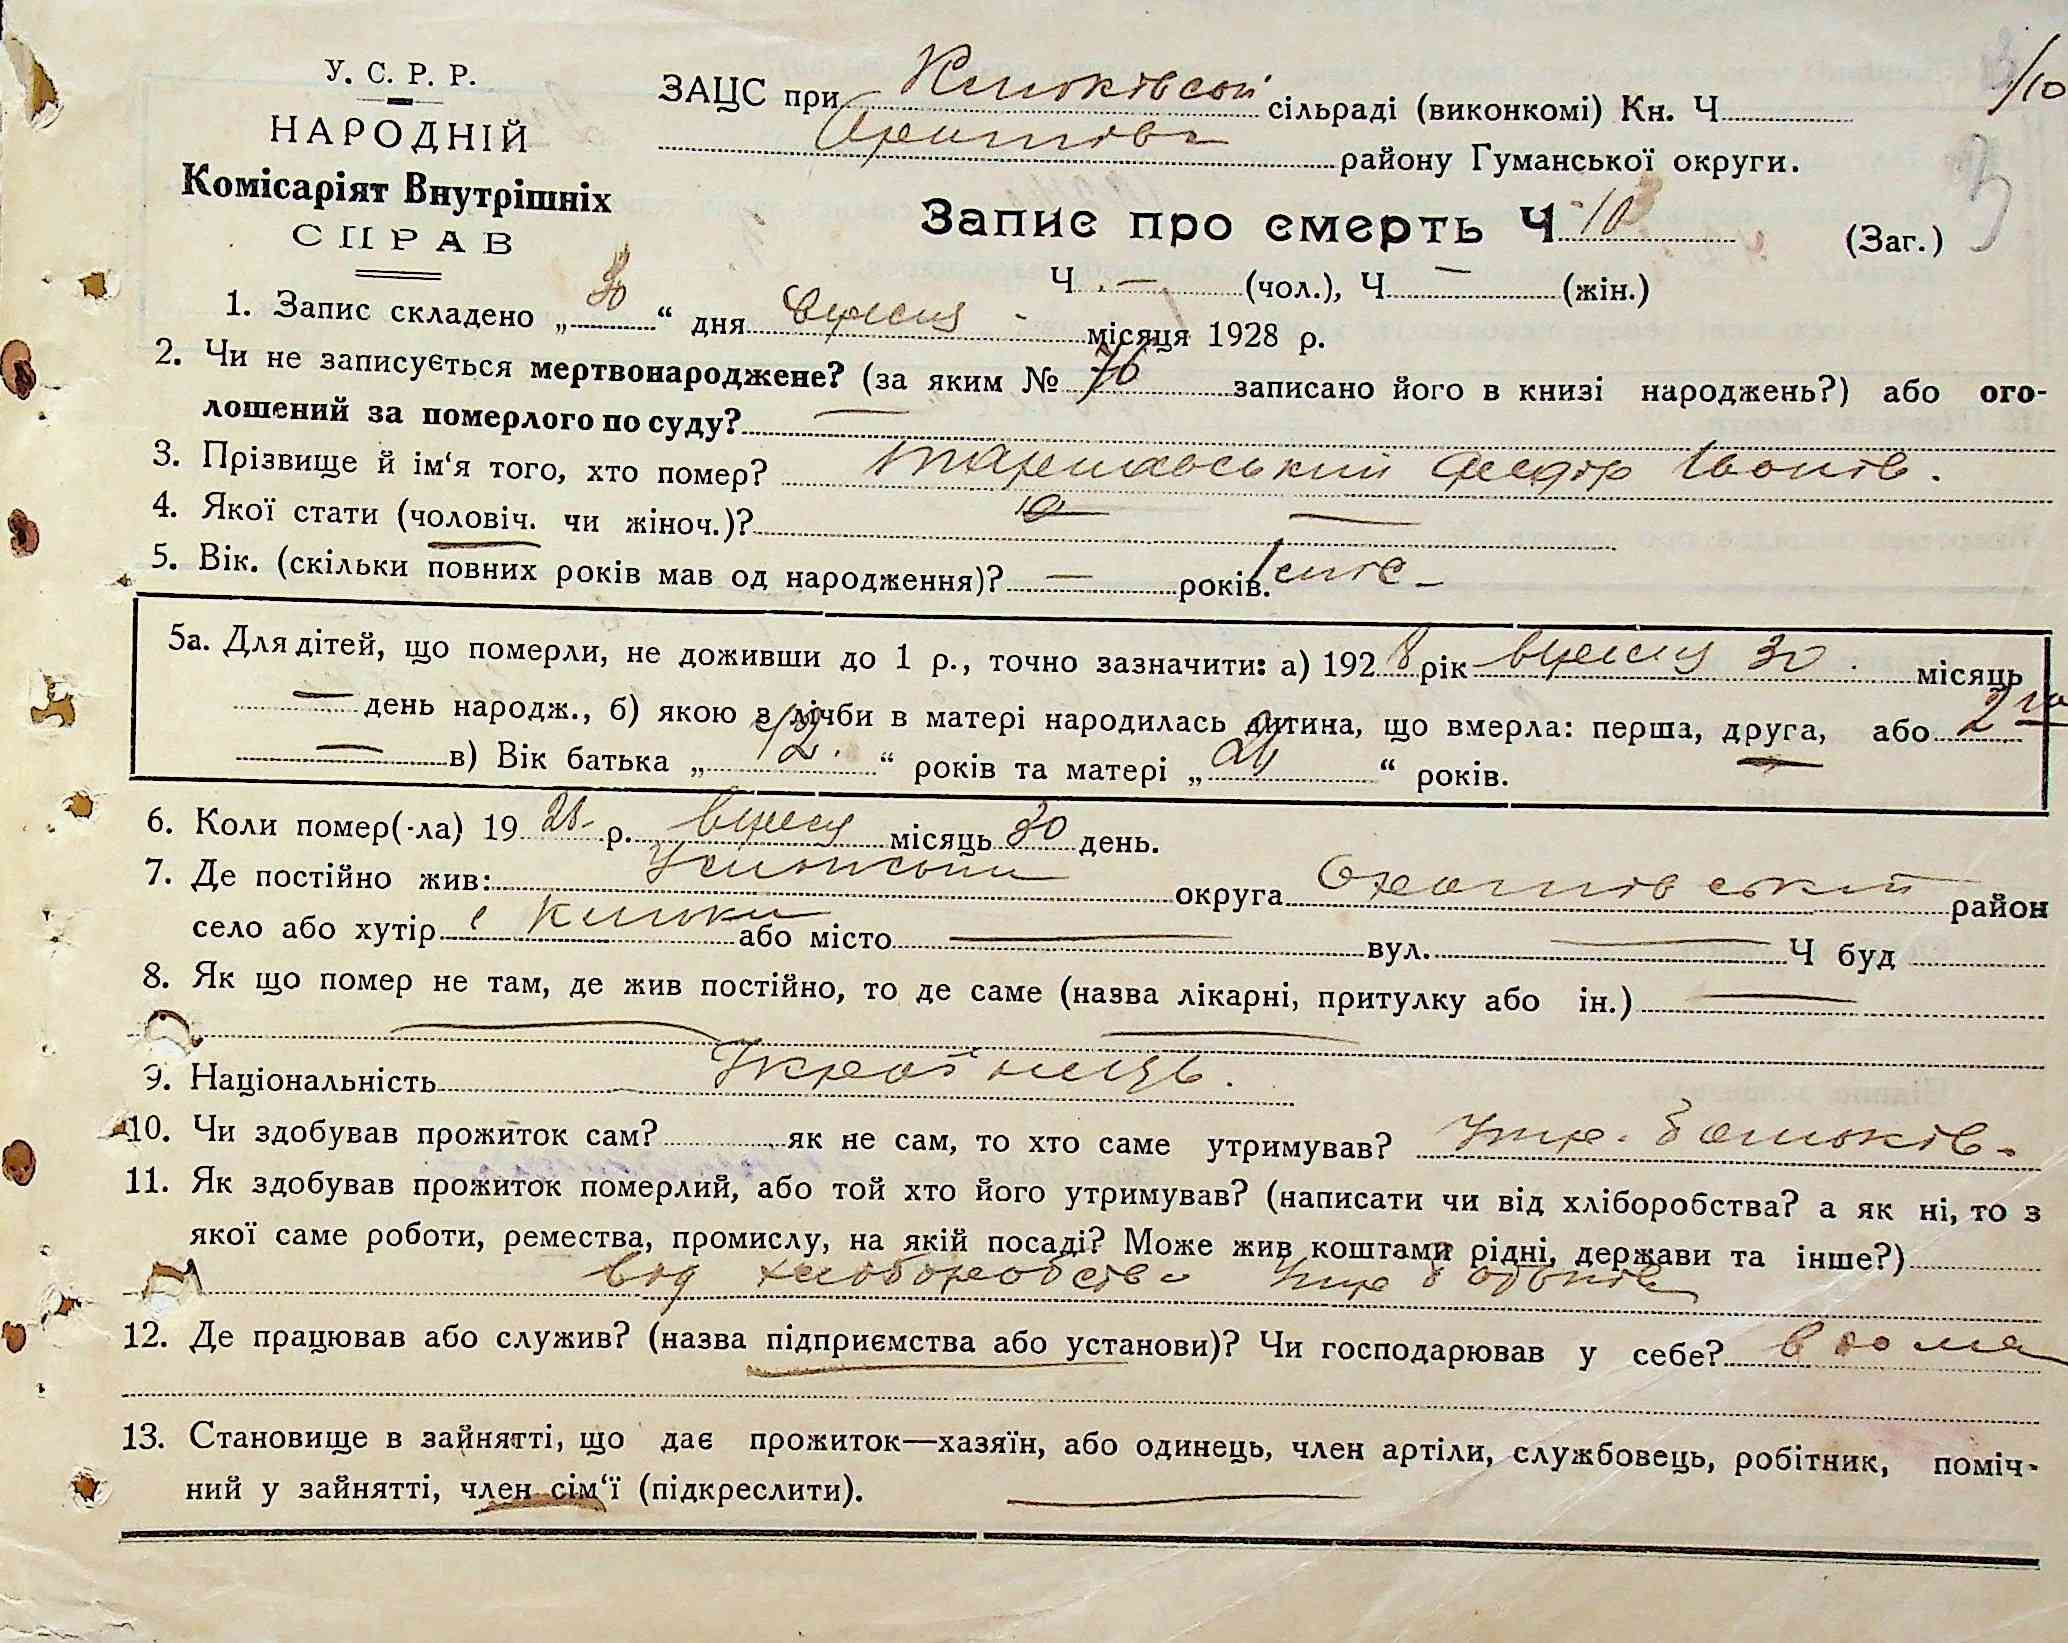 У. С. Р. Р.
НАРОДНІЙ
Комісаріят Внутрішніх
СПРАВ
ЗАЦС при сільраді (виконкомі) Кн. Ч.
району Гуманської округи.
1/10
3
Запис про смерть Ч 10 (Заг.)
Ч. — (чол.), Ч. — (жін.)
1. Запис складено „30“ дня вересня місяця 1928 р.
2. Чи не записується мертвонароджене? (за яким № 76 записано його в книзі народжень?) або ого-
лошений за померлого по суду? —
3. Прізвище й ім‘я того, хто помер? Федір Іванів.
4. Якої стати (чоловіч. чи жіноч.)? —
5. Вік. (скільки повних років мав од народження)? — років.
5а. Для дітей, що померли, не доживши до 1 р., точно зазначити: а) 1928 рік вересня 30. місяць
— день народж., б) якою з лічби в матері народилась дитина, що вмерла: перша, друга, або 2га
— в) Вік батька „ “ років та матері „ “ років.
6. Коли помер(-ла) 1928 р. вересня місяць 30 день.
7. Де постійно жив: округа район
село або хутір с або місто — вул. — Ч буд
8. Як що помер не там, де жив постійно, то де саме (назва лікарні, притулку або ін.) —
— —
9. Національність Українець.
10. Чи здобував прожиток сам? як не сам, то хто саме утримував? Утр. батьків.
11. Як здобував прожиток померлий, або той хто його утримував? (написати чи від хліборобства? а як ні, то з
якої саме роботи, ремества, промислу, на якій посаді? Може жив коштами рідні, держави та інше?)
від хлоборобства Утр батьків
12. Де працював або служив? (назва підприємства або установи)? Чи господарював у себе? вдома
13. Становище в зайнятті, що дає прожиток—хазяїн, або одинець, член артіли, службовець, робітник, поміч-
ний у зайнятті, член сім‘ї (підкреслити). —